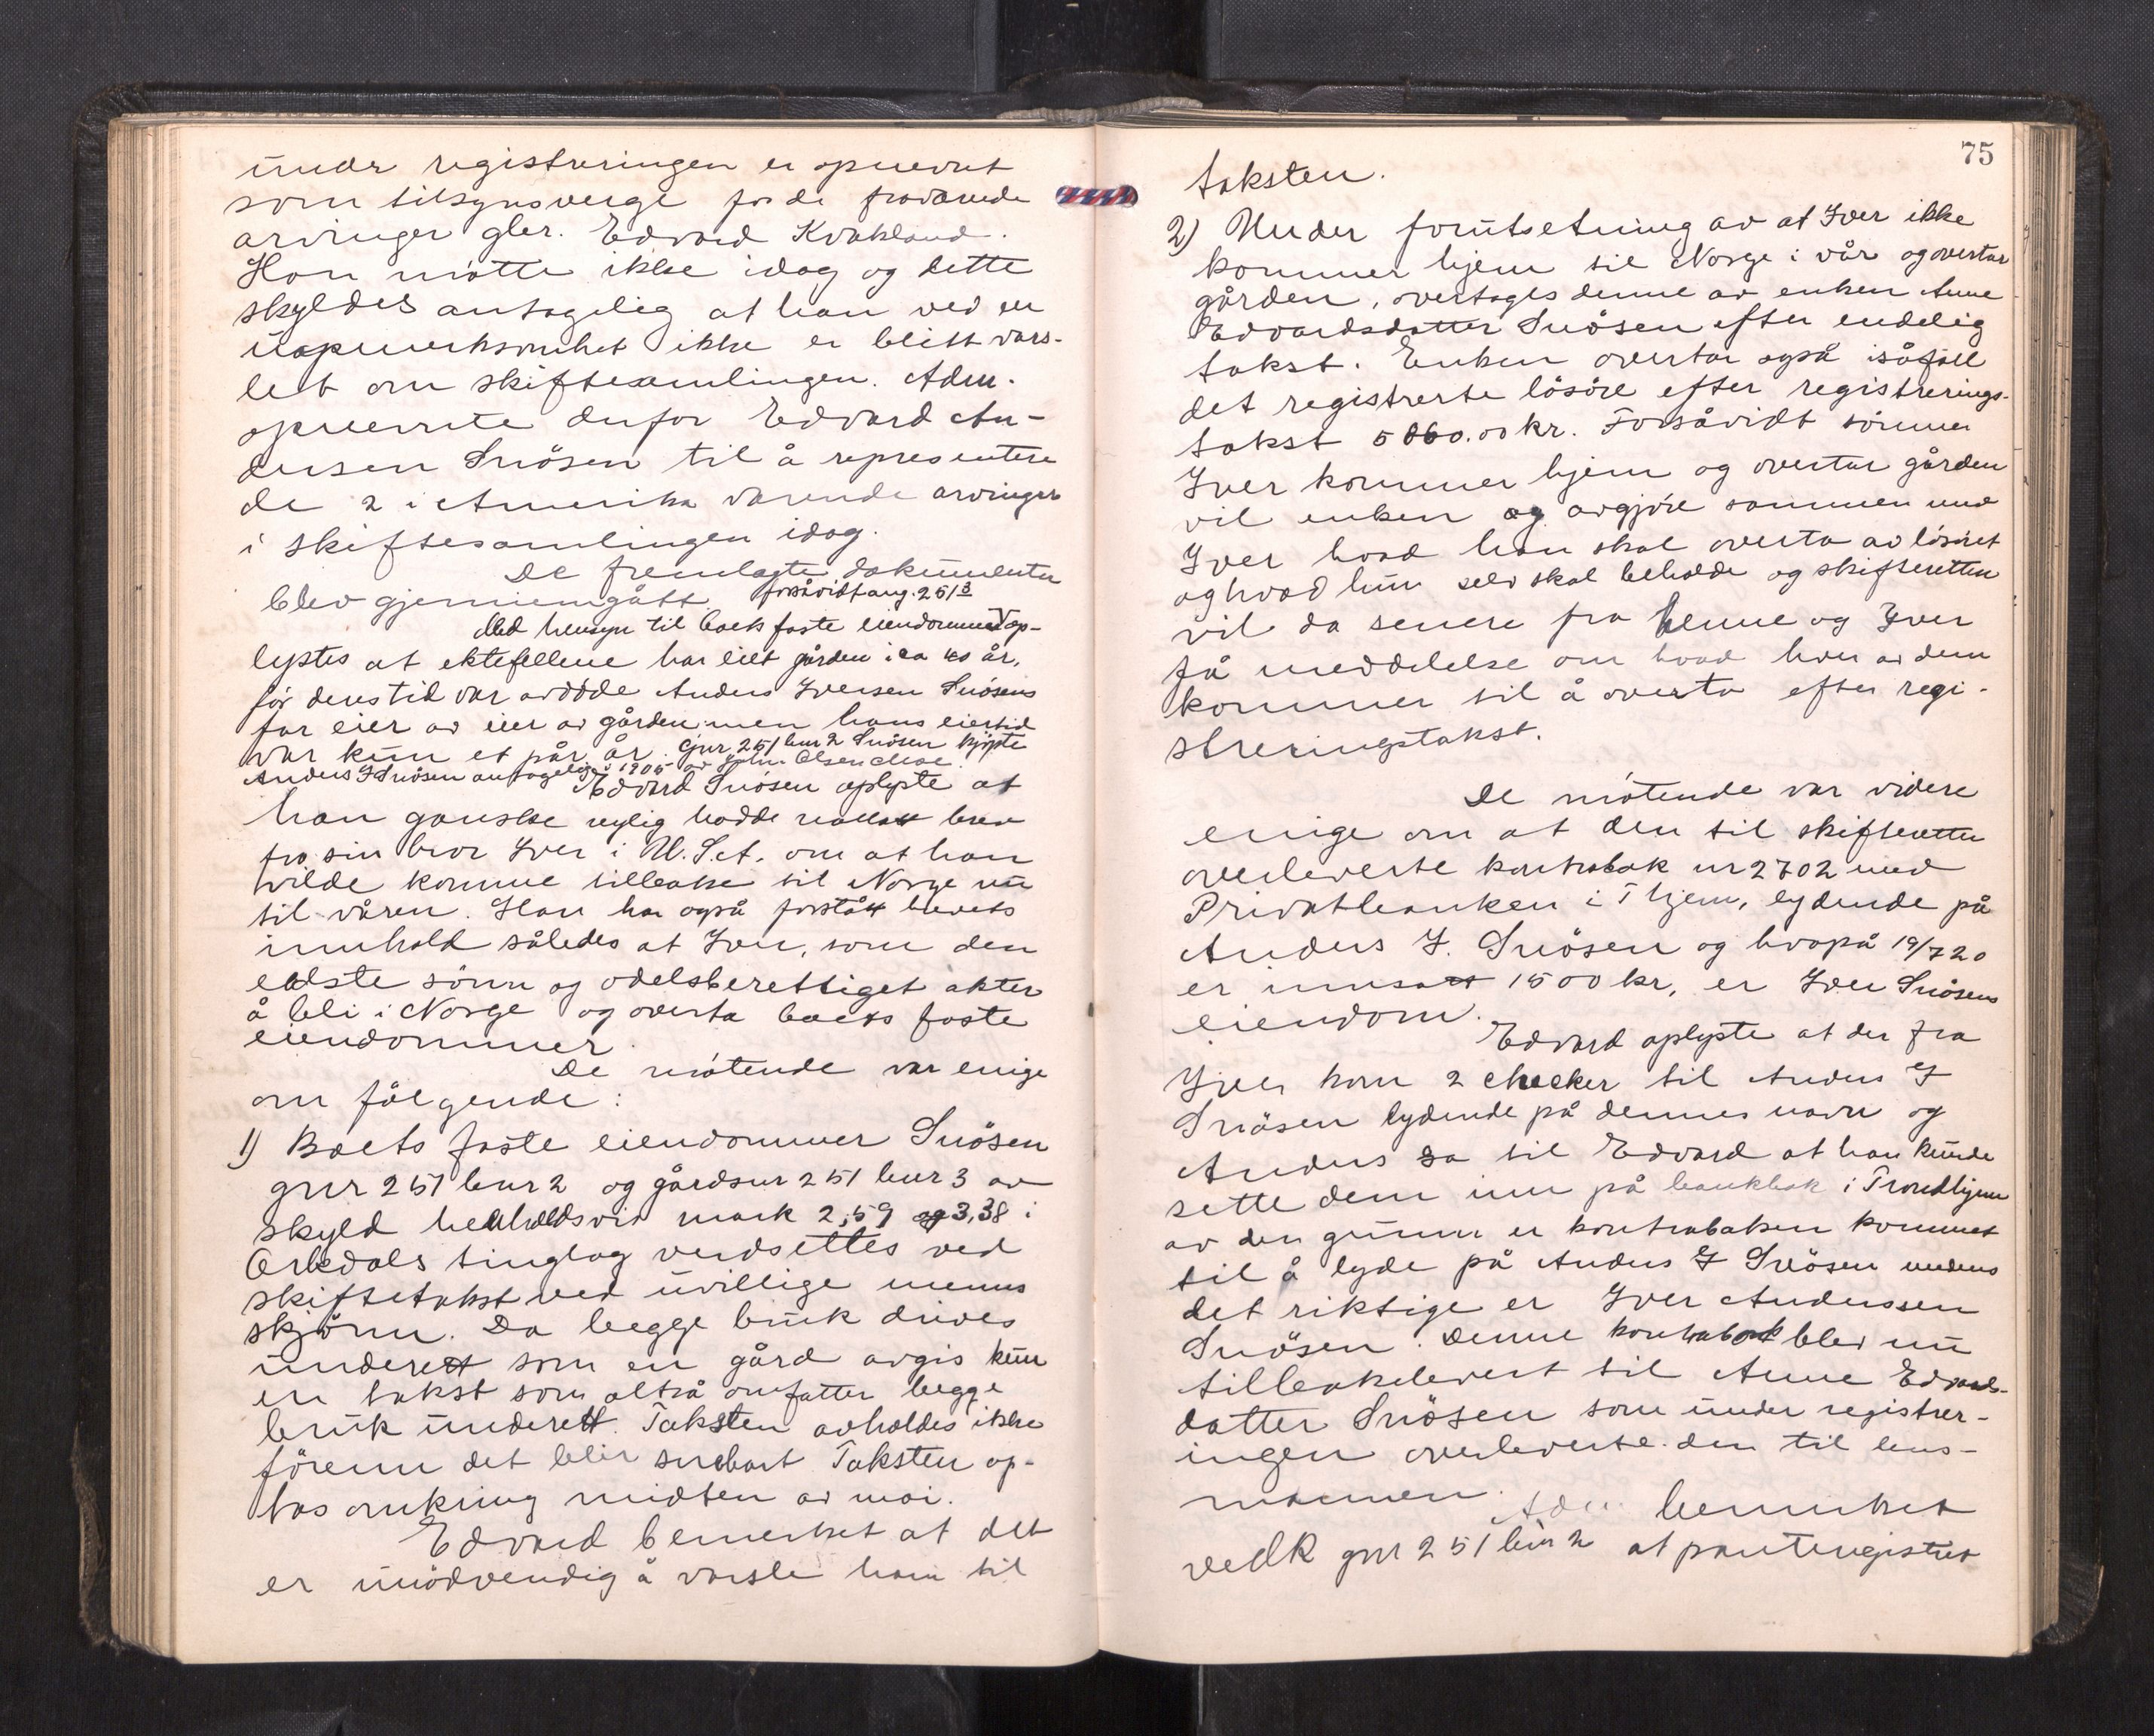 under registreringen er opnevnt
som tilsynsverge for de fraværende
arvinger gbr. Edvard Kvakland.
Han møtte ikke idag og dette
skyldes antagelig at han ved en
uopmerksomhet ikke er blitt vars-
let om skiftesamlingen. Adm.
opnevnte derfor Edvard An-
dersen Snösen til å representere
de 2 i Amerika værende arvinger
i skiftesamlingen idag.
De fremlagte dokumenter
blev gjennemgått. forsåvidt ang. 251/3
Med hensyn til boets faste eiendommer op-
lystes at ektefellene har eiet gården i ca 40 år,
før deres tid var avdöde Anders Iversen Snösens
far eier av eier av gården men hans eiertid
var kun et par år. Gnr 251 bnr 2 Snösen kjöpte
Anders I Snösen antagelig i 1905 av John Olsen
Edvard Snösen oplyste at
han ganske nylig hadde mottatt brev
fra sin bror Iver i U.S.A. om at han
vilde komme tilbake til Norge nu
til våren. Han har også forstått brevets
innhold således at Iver, som den
eldste sönn og odelsberettiget akter
å bli i Norge og overta boets faste
eiendommer.
De møtende var enige
om fölgende:
1) Boets faste eiendommer Snösen
gnr 251 bnr 2 og gårdsnr 251 bnr 3 av
skyld henholdsvis mark 2,59 og 3,38 i
Orkdals tinglag verdsettes ved
skiftetakst ved uvillige menns
skjönn. Da begge bruk drives
underett som en gård avgis kun
en takst som altså omfatter begge
bruk underett. Taksten avholdes ikke
förenn det blir snebart. Taksten op-
tas omkring midten av mai.
Edvard bemerket at det
er unödvendig å varsle ham til
75
taksten.
2) Under forutsetning av at Iver ikke
kommer hjem til Norge i vår og overtar
gården, overtages denne av enken Anne
Edvardsdatter Snösen efter endelig
takst. Enken overtar også isåfall
det registrerte lösöre efter registrerings-
takst 5060.00 kr. Forsåvidt sönnen
Iver kommer hjem og overtar gården
vil enken og avgjöre sammen med
Iver hvad han skal overta av lösöret
og hvad hun selv skal beholde og skifteretten
vil da senere fra henne og Iver
få meddelelse om hvad hver av dem
kommer til å overta efter regi-
streringstakst.
De møtende var videre
enige om at den til skifteretten
overleverte kontrabok nr 2702 med
Privatbanken i Thjem, lydende på
Anders I. Snösen og hvorpå 19/7 20
er innsatt 1500 kr, er Iver Snösens
eiendom.
Edvard oplyste at der fra
Iver kom 2 checker til Anders I
Snösen lydende på dennes navn og
Anders sa til Edvard at han kunde
sette dem inn på bankbok i Trondhjem
av den grunn er kontraboken kommet
til å lyde på Anders I Snösen mens
det riktige er Iver Anderssen
Snösen. Denne kontrabok blev nu
tilbakelevert til Anne Edvards-
datter Snösen som under registrer-
ingen overleverte den til lens-
mannen.
Adm. bemerket
vedk gnr 251 bnr 2 at panteregistret